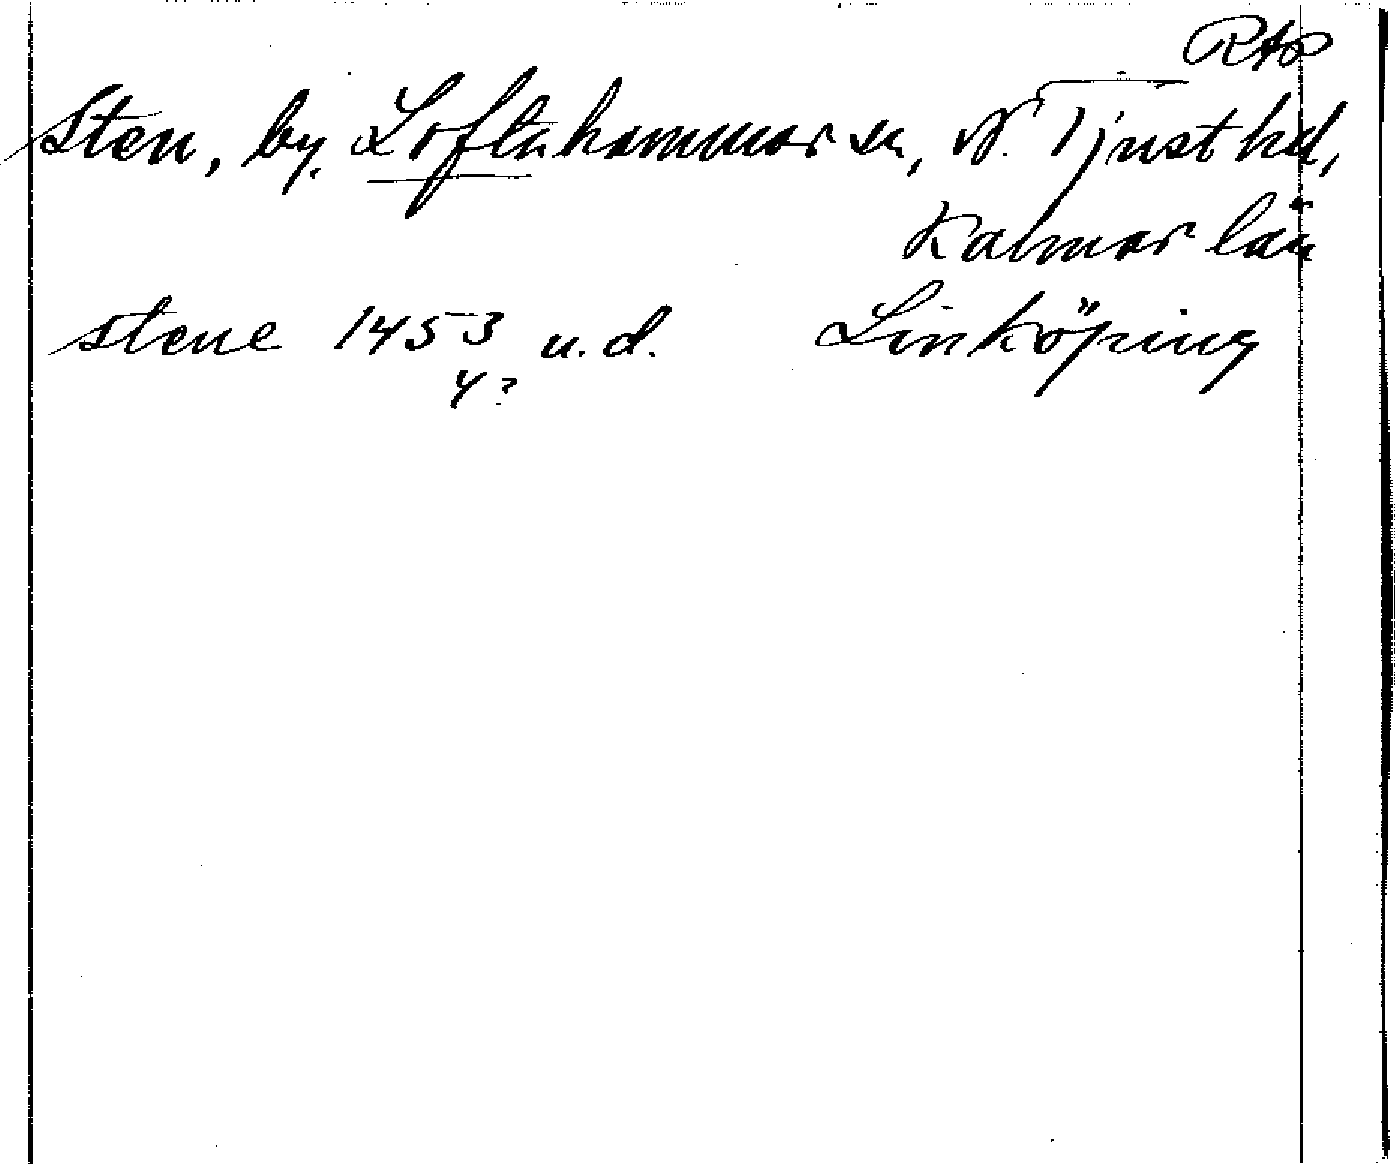 RAp
Sten, by. Loftahammar sn, N. Tjust hd,
Kalmar län
stene 1453 u.d. Linköping
4?